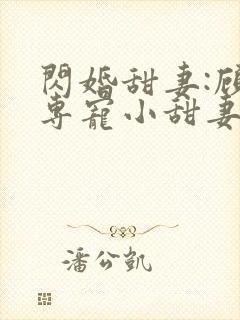 閃婚甜妻:顾
專寵小甜妻
潘公凱